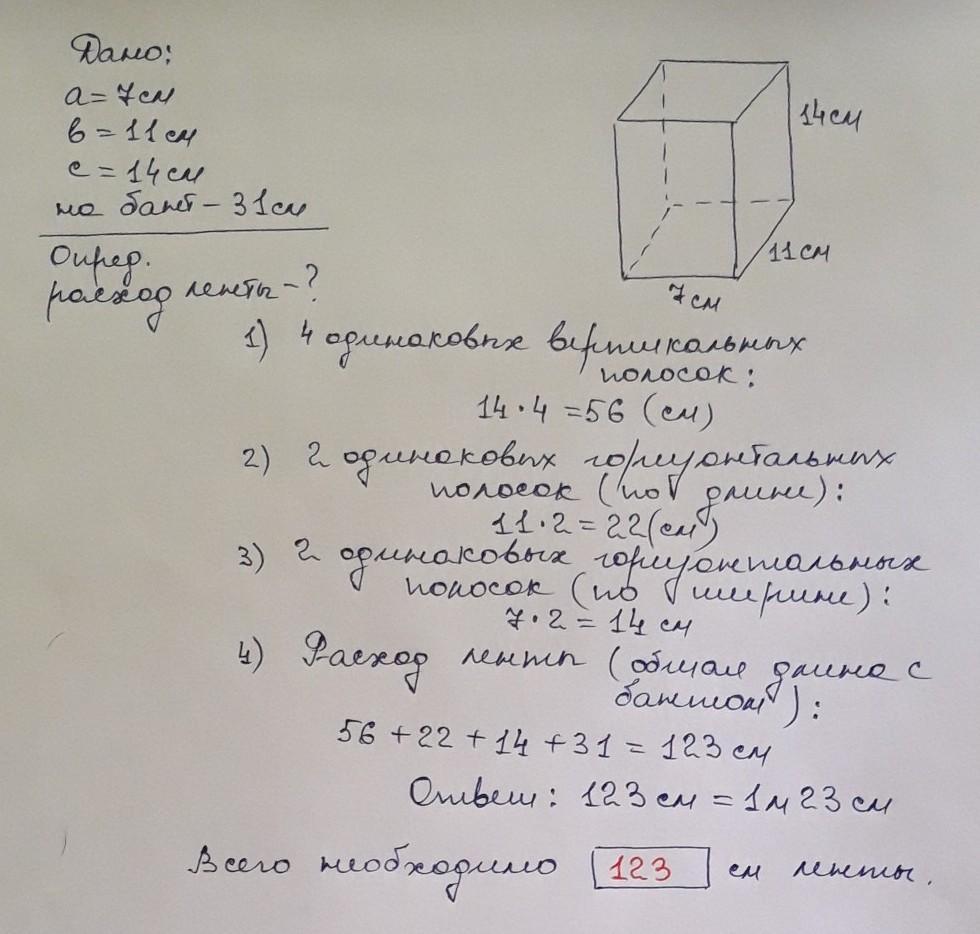 Дано:
a = 7 см
в = 11 см
с = 14 см
на бант - 31 см
Опред.
расход ленты - ?
14 см
11 см
7 см
1) 4 одинаковых вертикальных
полосок:
14 · 4 = 56 (см)
2) 2 одинаковых горизонтальных
полосок (по длине):
11 · 2 = 22 (см)
3) 2 одинаковых горизонтальных
полосок (по ширине):
7 · 2 = 14 см
4) Расход ленты (общая длина с
бантом):
56 + 22 + 14 + 31 = 123 см
Ответ: 123 см = 1 м 23 см
Всего необходимо 123 см ленты.